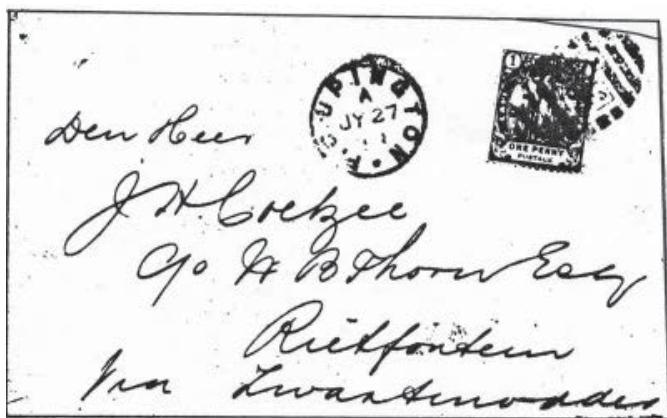 UPINGTON
A
JY 27
11
1
ONE PENNY
POSTAGE
Den Heer
J H Coetzee
c/o H B Thorn Esq
Rietfontein
Via Zwartmodder